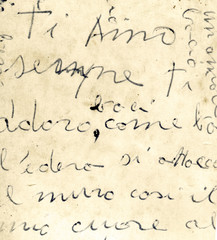 ti Amo
sempre ti
baci
adoro, come
l'edera si attacca
l muro così il
mio cuore a